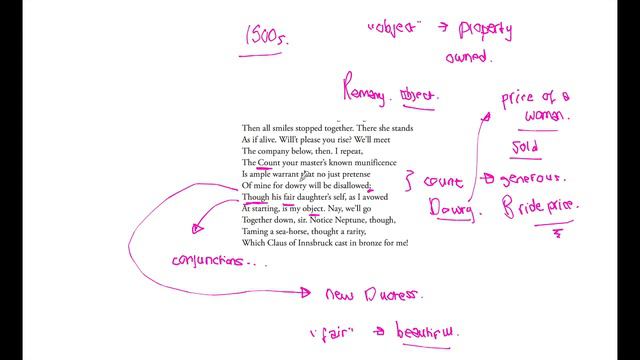 1500s.
"object" → property
owned.
Remany object.
price of a
woman.
sold
Then all smiles stopped together. There she stands
As if alive. Will't please you rise? We'll meet
The company below, then. I repeat,
The Count your master's known munificence
Is ample warrant that no just pretense
Of mine for dowry will be disallowed;
Though his fair daughter's self, as I avowed
At starting, is my object. Nay, we'll go
Together down, sir. Notice Neptune, though,
Taming a sea-horse, thought a rarity,
Which Claus of Innsbruck cast in bronze for me!
} count → generous.
Dowry Bride price.
conjunctions...
new Duchess.
"fair" → beautiful.